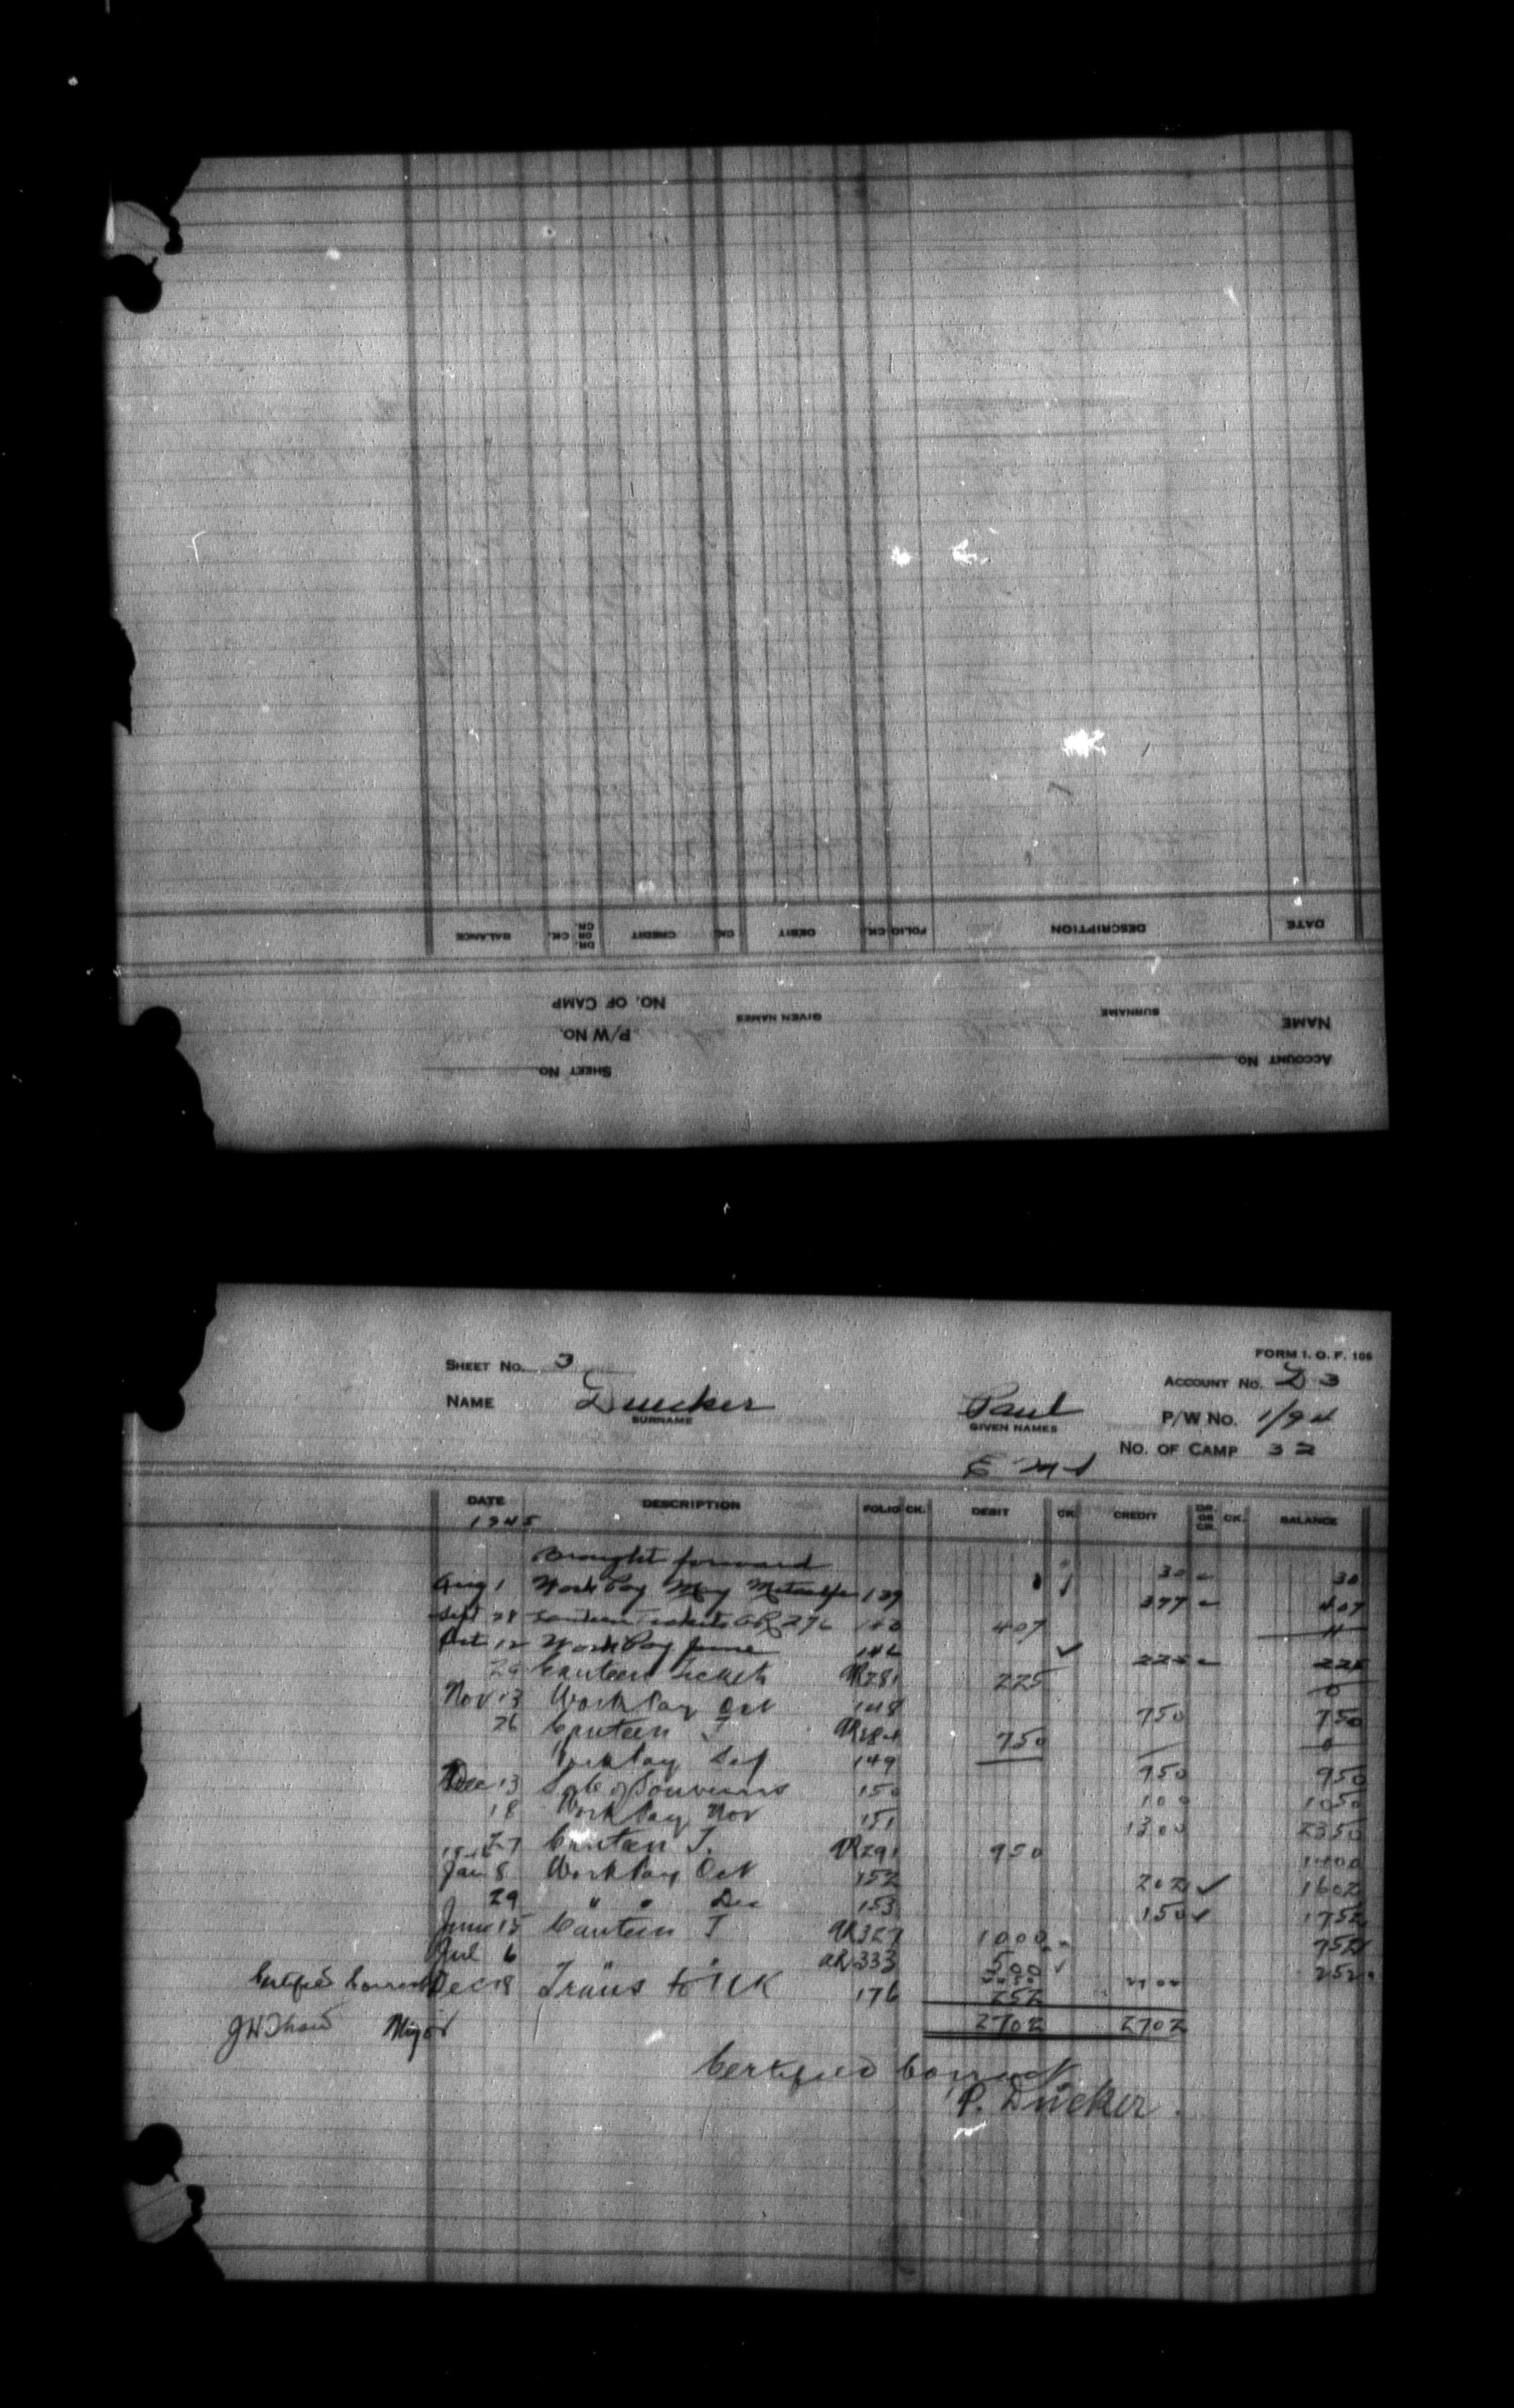 DATE DESCRIPTION FOLIO CK. DEBIT CK. CREDIT DR. OR CR. CK. BALANCE
NAME SURNAME GIVEN NAMES P/W NO. NO. OF CAMP
ACCOUNT NO. SHEET NO.
FORM I. O. F. 106
SHEET NO. 3 ACCOUNT NO. D 3
NAME Duecker Paul P/W NO. 1/94
SURNAME GIVEN NAMES
NO. OF CAMP 32
DATE DESCRIPTION FOLIO CK. DEBIT CK. CREDIT DR. OR CR. CK. BALANCE
1945
Brought forward 30 30
Aug 1 Work Pay May 139 377 407
Sept 28 Canteen Tickets OR 276 407
Oct 12 Work Pay June 146 225 225
Canteen Tickets OR281 225 0
Nov 13 Work Pay Oct 148 750 750
26 Canteen T OR284 750 0
Work Pay Sep 149 950 950
Dec 13 Sale of Souvenirs 150 100 1050
18 Work Pay Nov 151 1300 2350
27 Canteen T. OR291 950 1400
Jan 8 Work Pay Oct 152 202 ✓ 1602
29 " " Dec 153 150 ✓ 1752
June 15 Canteen T OR327 1000 752
Jul 6 " " OR333 500 ✓ 252
Certified Correct Dec 18 Trans to UK 176 252
Major 2702 2702
Certified Correct
P. Dücker.